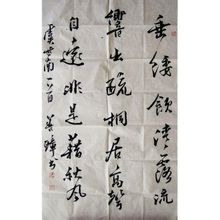 垂緌飲清露流
響出疏桐居高聲
自遠非是藉秋風
虞世南